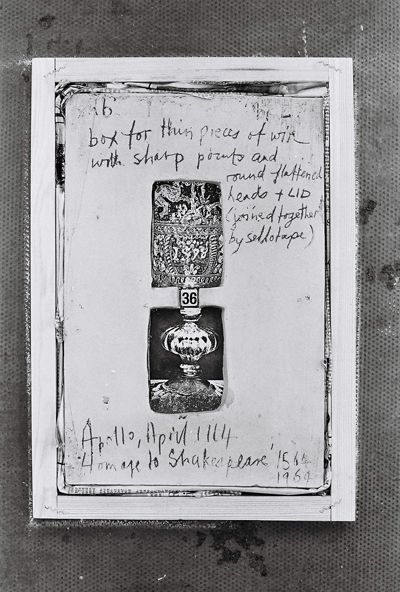 box for thin pieces of wire
with sharp points and
round flattened
heads + LID
(joined together
by sellotape)
36
Apollo, April 1964
'Homage to Shakespeare' 1564
1964